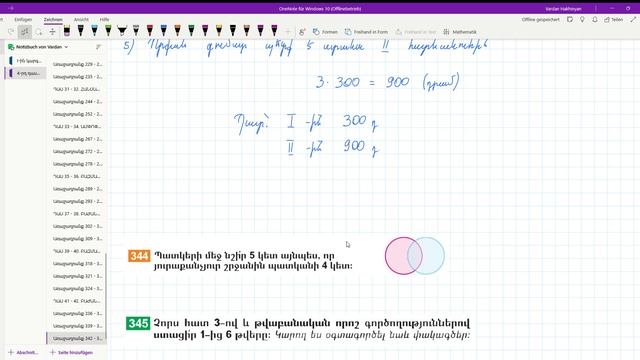 OneNote für Windows 10 (Offlinebetrieb)
Vardan Hakhinyan
Datei Start Einfügen Zeichnen Ansicht Hilfe
Offline gespeichert
Freigeben
Formen
Freihand in Form
Freihand in Text
Mathematik
Notizbuch von Vardan
Առաջադրանք 229 - 2...
Առաջադրանք 235 - 2...
Առաջադրանք 244 - 2...
Առաջադրանք 252 - 2...
Առաջադրանք 261 - 2...
Առաջադրանք 268 - 2...
Առաջադրանք 276 - 2...
Առաջադրանք 289 - 2...
Առաջադրանք 293 - 3...
Առաջադրանք 301 - 3...
Առաջադրանք 309 - 3...
Առաջադրանք 318 - 3...
Առաջադրանք 321 - 3...
Առաջադրանք 324 - 3...
Առաջադրանք 330 - 3...
Առաջադրանք 339 - 3...
Առաջադրանք 342 - 3...
+ Abschnitt
+ Seite hinzufügen
3 · 300 = 900 (դրամ)
Պատ՝ I -ին 300 դ
II -ին 900 դ
344 Պատկերի մեջ նշի՛ր 5 կետ այնպես, որ
յուրաքանչյուր շրջանին պատկանի 4 կետ:
345 Չորս հատ 3–ով և թվաբանական որոշ գործողություններով
ստացի՛ր 1–ից 6 թվերը: Կարող ես օգտագործել նաև փակագծեր: